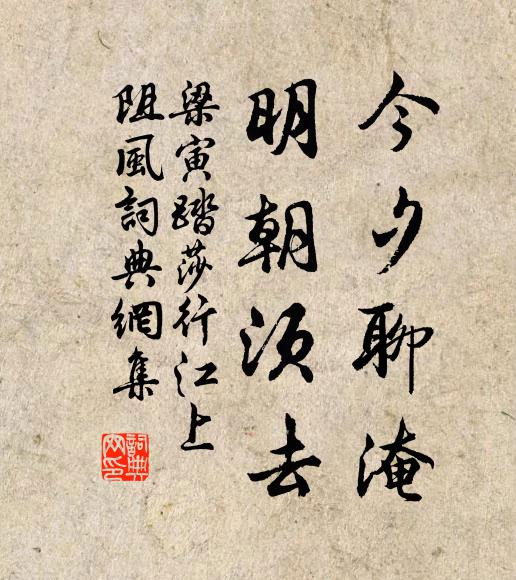 今夕聊淹
明朝須去
梁寅踏莎行江上
阻風詞典網集
詞典網印